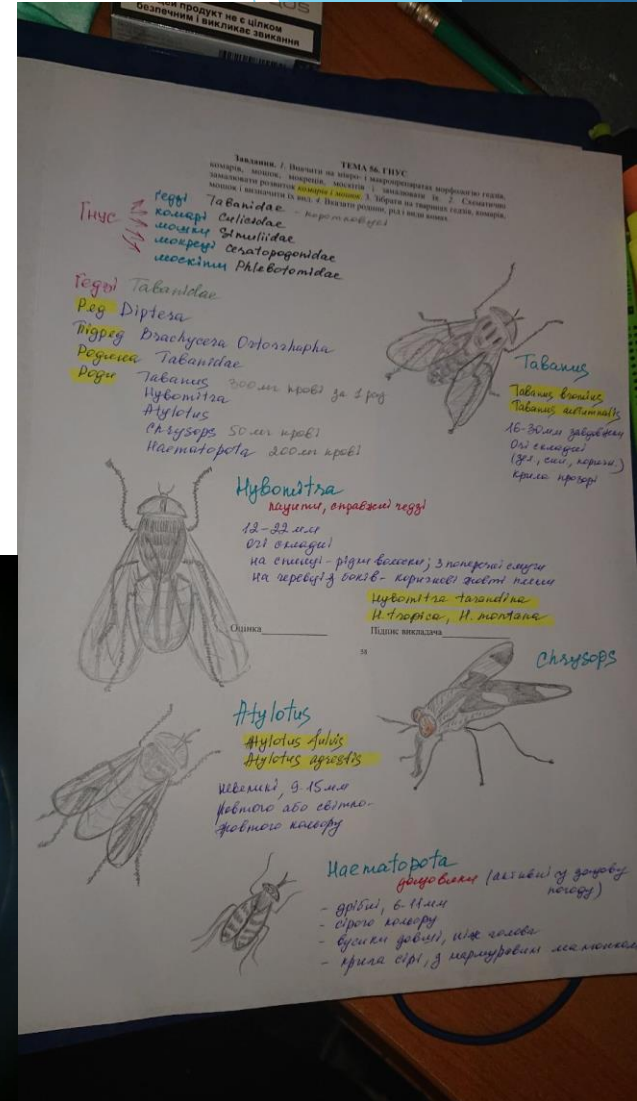 цей продукт не є цілком
безпечним і викликає звикання
ТЕМА 56. ГНУС
Завдання. 1. Вивчити на мікро- і макропрепаратах морфологію ґедзів,
комарів, мошок, мокреців, москітів і замалювати їх. 2. Схематично
замалювати розвиток комарів і мошок. 3. Зібрати на тваринах ґедзів, комарів,
мошок і визначити їх вид. 4. Вказати родини, роди і види комах.
Гнус
ґедзі Tabanidae - коротковусі
комарі Culicidae
мошки Simuliidae
мокреці Ceratopogonidae
москіти Phlebotomidae
Ґедзі Tabanidae
Ряд Diptera
Підряд Brachycera Ortorrhapha
Родина Tabanidae
Роди Tabanus 300мг крові за 1 раз
Hybomitra
Atylotus
Chrysops 50мг крові
Haematopota 200мг крові
Tabanus
Tabanus bromius
Tabanus autumnalis
16-30мм завдовжки
Очі складні
(зел., сині, коричн.)
крила прозорі
Hybomitra
справжні ґедзі
12-22 мм
очі складні
на спинці - рідкі волоски; 3 поперечні смуги
на черевці з боків - коричневі жовті плями
Hybomitra tarandina
H. tropica, H. montana
Оцінка
Підпис викладача
58
Chrysops
Atylotus
Atylotus fulvis
Atylotus agrestis
невеликі, 9-15мм
жовтого або світло-
жовтого кольору
Haematopota
дощовики (активні у дощову
погоду)
- дрібні, 6-11мм
- сірого кольору
- вусики довші, ніж голова
- крила сірі, з мармуровим малюнком